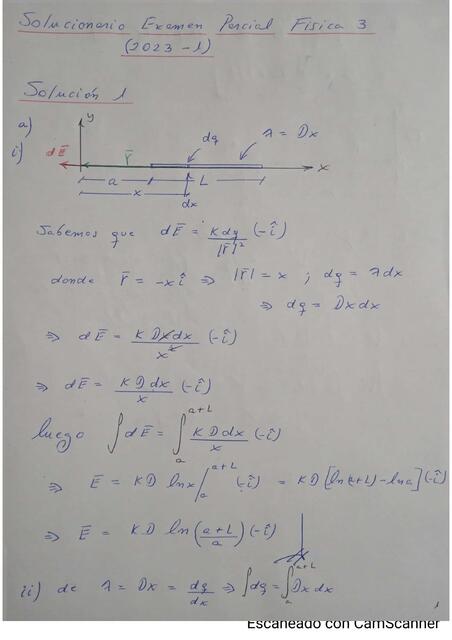 Solucionario Examen Parcial Física 3
(2023-1)
Solución 1
a)
i)
y
dq
λ = Dx
dE̅
r̅
x
a
L
x
dx
Sabemos que dE̅ = K dq / |r̅|² (-î)
donde r̅ = -xî ⇒ |r̅| = x ; dq = λdx
⇒ dq = Dxdx
⇒ dE̅ = K Dxdx / x² (-î)
⇒ dE̅ = K D dx / x (-î)
luego ∫dE̅ = ∫ₐᵃ⁺ᴸ K D dx / x (-î)
⇒ E̅ = KD lnx |ₐᵃ⁺ᴸ (-î) = KD [ln(a+L) - lna] (-î)
⇒ E̅ = KD ln((a+L)/a) (-î)
ii) de λ = Dx = dq/dx ⇒ ∫dq = ∫ₐᵃ⁺ᴸ Dx dx
1
Escaneado con CamScanner